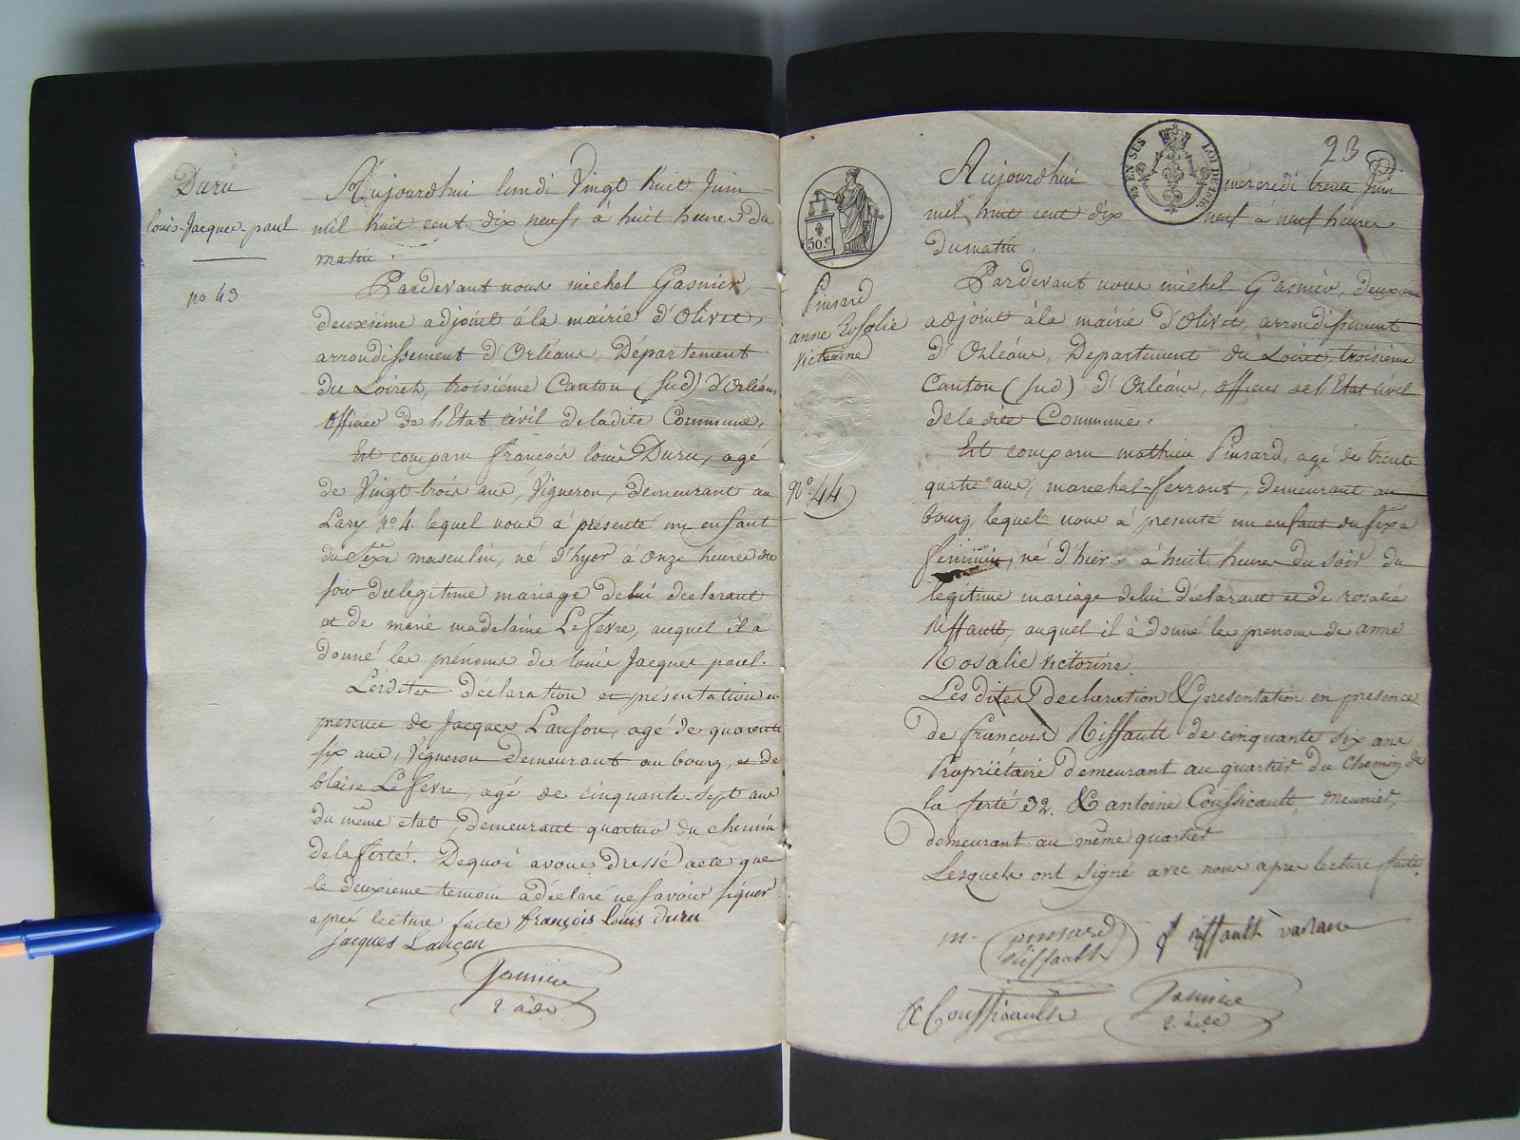 Duru
louis-Jacques-paul
no 43
Aujourdhui lundi Vingt huit Juin
mil huit cent dix neuf, à huit heures du
matin.
Pardevant nous michel Gasnier,
deuxiéme adjoint à la mairie d'Olivet,
arrondissement d'Orléans, Département
du Loiret, troisiéme Canton (sud) d'Orléans,
Officier de l'Etat civil de ladite Commune,
Est comparu françois louis Duru, agé
de Vingt-trois ans, Vigneron, demeurant au
Lary no 4. lequel nous a présenté un enfant
du Sexe masculin, né d'hyer à onze heures du
soir du legitime mariage de lui declarant
et de marie madelaine Lefevre, auquel il a
donné les prénoms de louis Jacques paul.
Lesdites déclaration et présentation en
presence de Jacques Lanson, agé de quarante
six ans, Vigneron demeurant au bourg, et de
blaise Lefevre, agé de cinquante-sept ans
du même etat, demeurant quartier du chemin
de la ferté. Dequoi avons dressé acte que
le deuxieme temoin a déclaré ne savoir signer
apres lecture faite françois louis duru
jacques Lançon
Gasnier
2 adj
23
ES EN SUS
LOI DE 1816
50 c
Pinsard
anne Rosalie
Victorine
No. 44
Aujourdhui mercredi trente Juin
mil huit cent dix neuf à neuf heures
du matin.
Pardevant nous michel Gasnier, deuxme
adjoint à la mairie d'Olivet, arrondissement
d'Orléans, Departement du Loiret, troisiéme
Canton (sud) d'Orléans, officier de l'Etat civil
de la dite Commune.
Est comparu mathieu Pinsard, agé de trente
quatre ans, marechal-ferrant, demeurant au
bourg, lequel nous à presenté un enfant du sexe
féminin, né d'hier à huit heures du soir du
legitime mariage de lui déclarant et de rosalie
Riffault, auquel il à donné les prenoms de anne
Rosalie victorine
Les dites declaration & presentation en presence
de francois Riffault de cinquante six ans
Propriétaire demeurant au quartier du Chemin de
la ferté 32. & antoine Coussicault meunier,
demeurant au même quartier
Lesquels ont signé avec nous apres lecture faite
m. pinsard f riffault
Riffault
A Coussicault Gasnier
2. adj